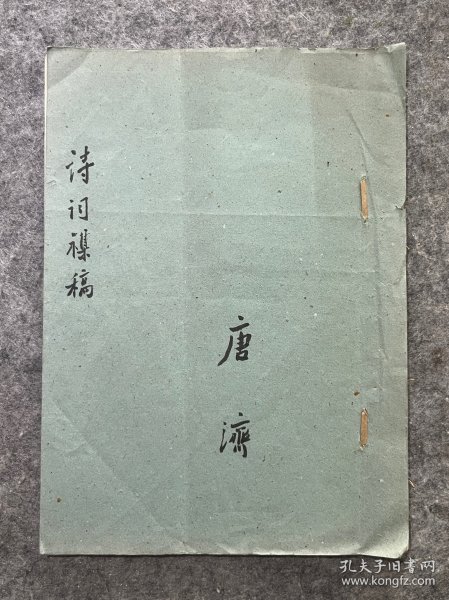 诗词襍稿
唐濟
孔夫子旧书网
www.kongfz.com